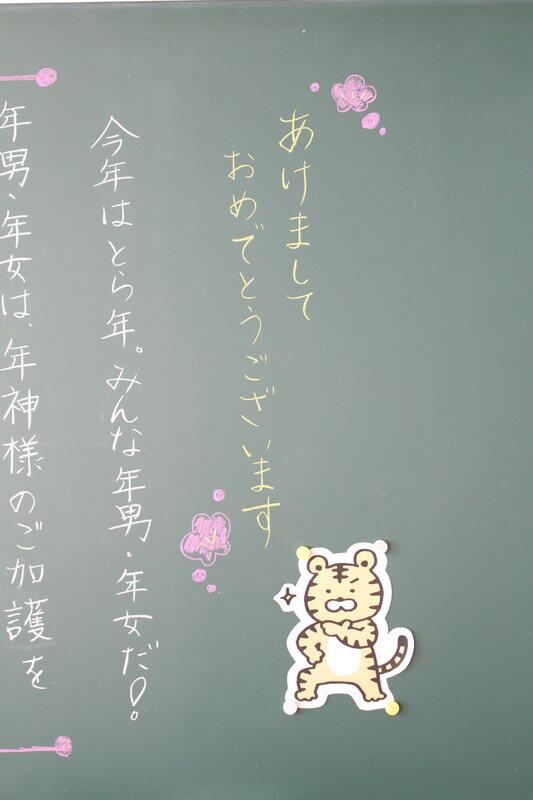 あけまして
おめでとうございます
今年はとら年。みんな年男・年女だ!
年男、年女は、年神様のご加護を